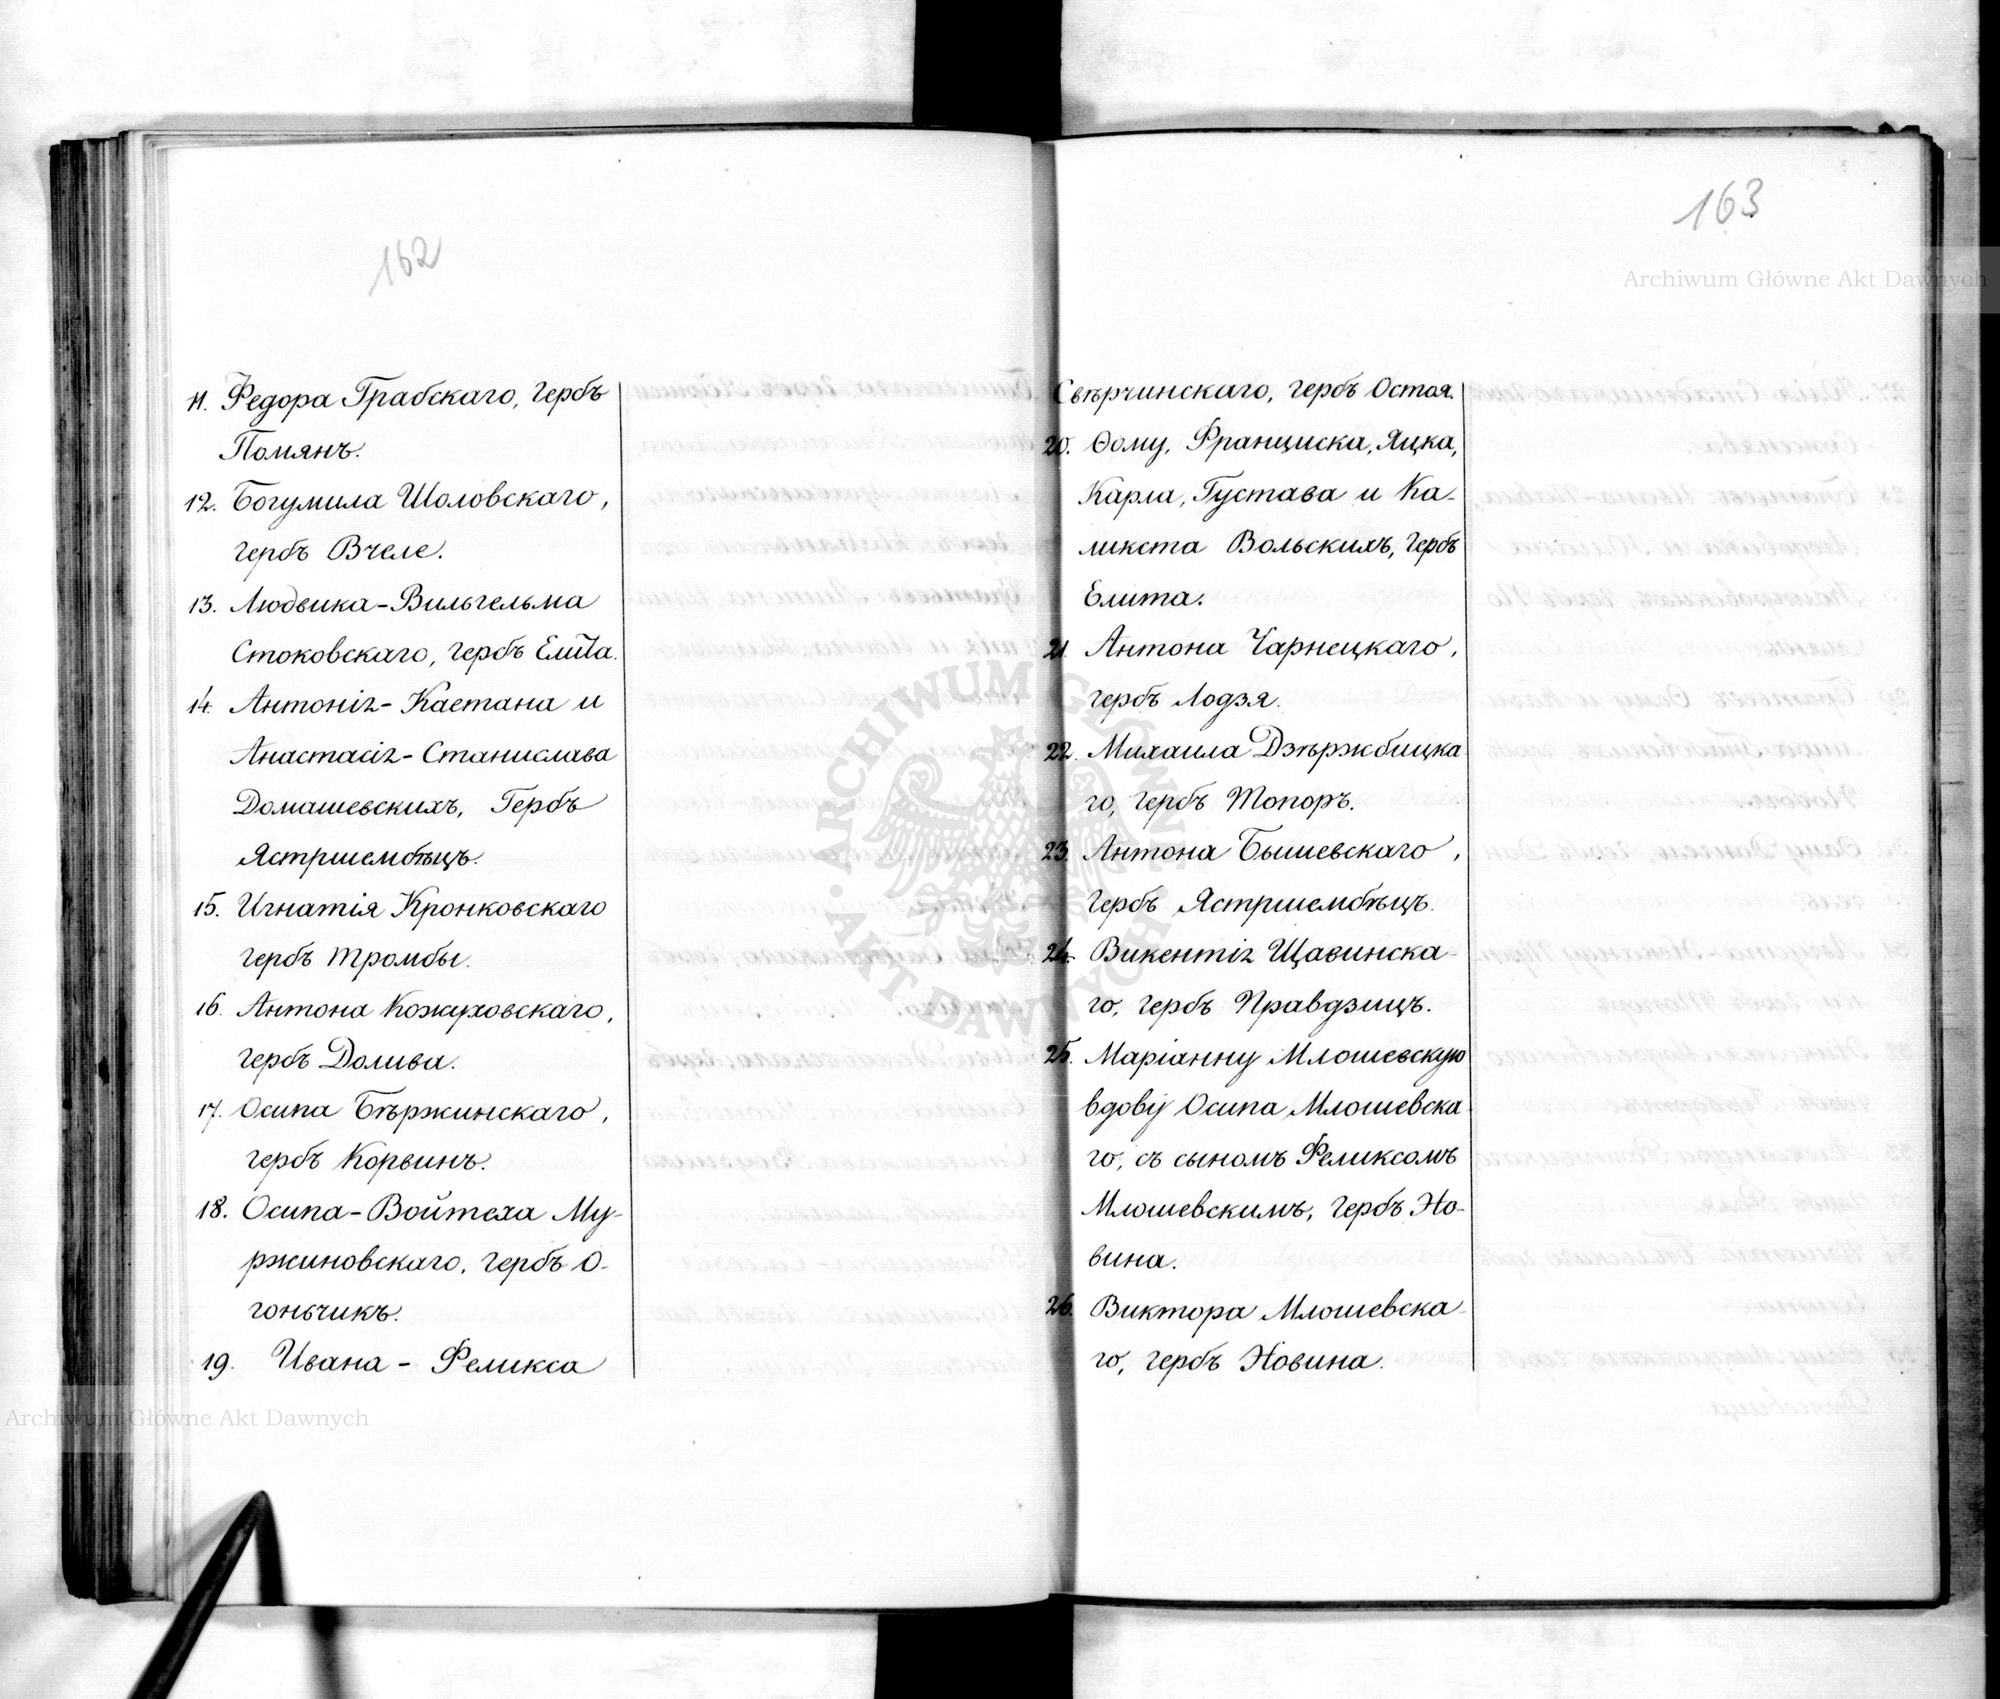 162
11. Федора Грабскаго, гербъ
Помянъ.
12. Богумила Шоловскаго,
гербъ Вчеле.
13. Людвика-Вильгельма
Стоковскаго, гербъ Елита.
14. Антонія-Каетана и
Анастасія-Станислава
Домашевскихъ, Гербъ
Ястршембѣцъ.
15. Игнатія Кронковскаго
гербъ Тромбы.
16. Антона Кожуховскаго,
гербъ Долива.
17. Осипа Бѣржинскаго,
гербъ Корвинъ.
18. Осипа-Войтеха Му-
ржиновскаго, гербъ О-
гоньчикъ.
19. Ивана - Феликса
163
Свѣрчинскаго, гербъ Остоя.
20. Ѳому, Франциска, Яцка,
Карла, Густава и Ка-
ликста Вольскихъ, гербъ
Елита.
21. Антона Чарнецкаго,
гербъ Лодзя.
22. Михаила Дзѣржбицка
го, гербъ Топоръ.
23. Антона Бышевскаго,
Гербъ Ястршембѣцъ.
24. Викентія Щавинска-
го, гербъ Правдзицъ.
25. Маріанну Млошевскую
вдову Осипа Млошевска-
го, съ сыномъ Феликсомъ
Млошевскимъ, гербъ Но-
вина.
26. Виктора Млошевска-
го, гербъ Новина.
Archiwum Główne Akt Dawnych
Archiwum Główne Akt Dawnych
ARCHIWUM GŁÓWNE AKT DAWNYCH